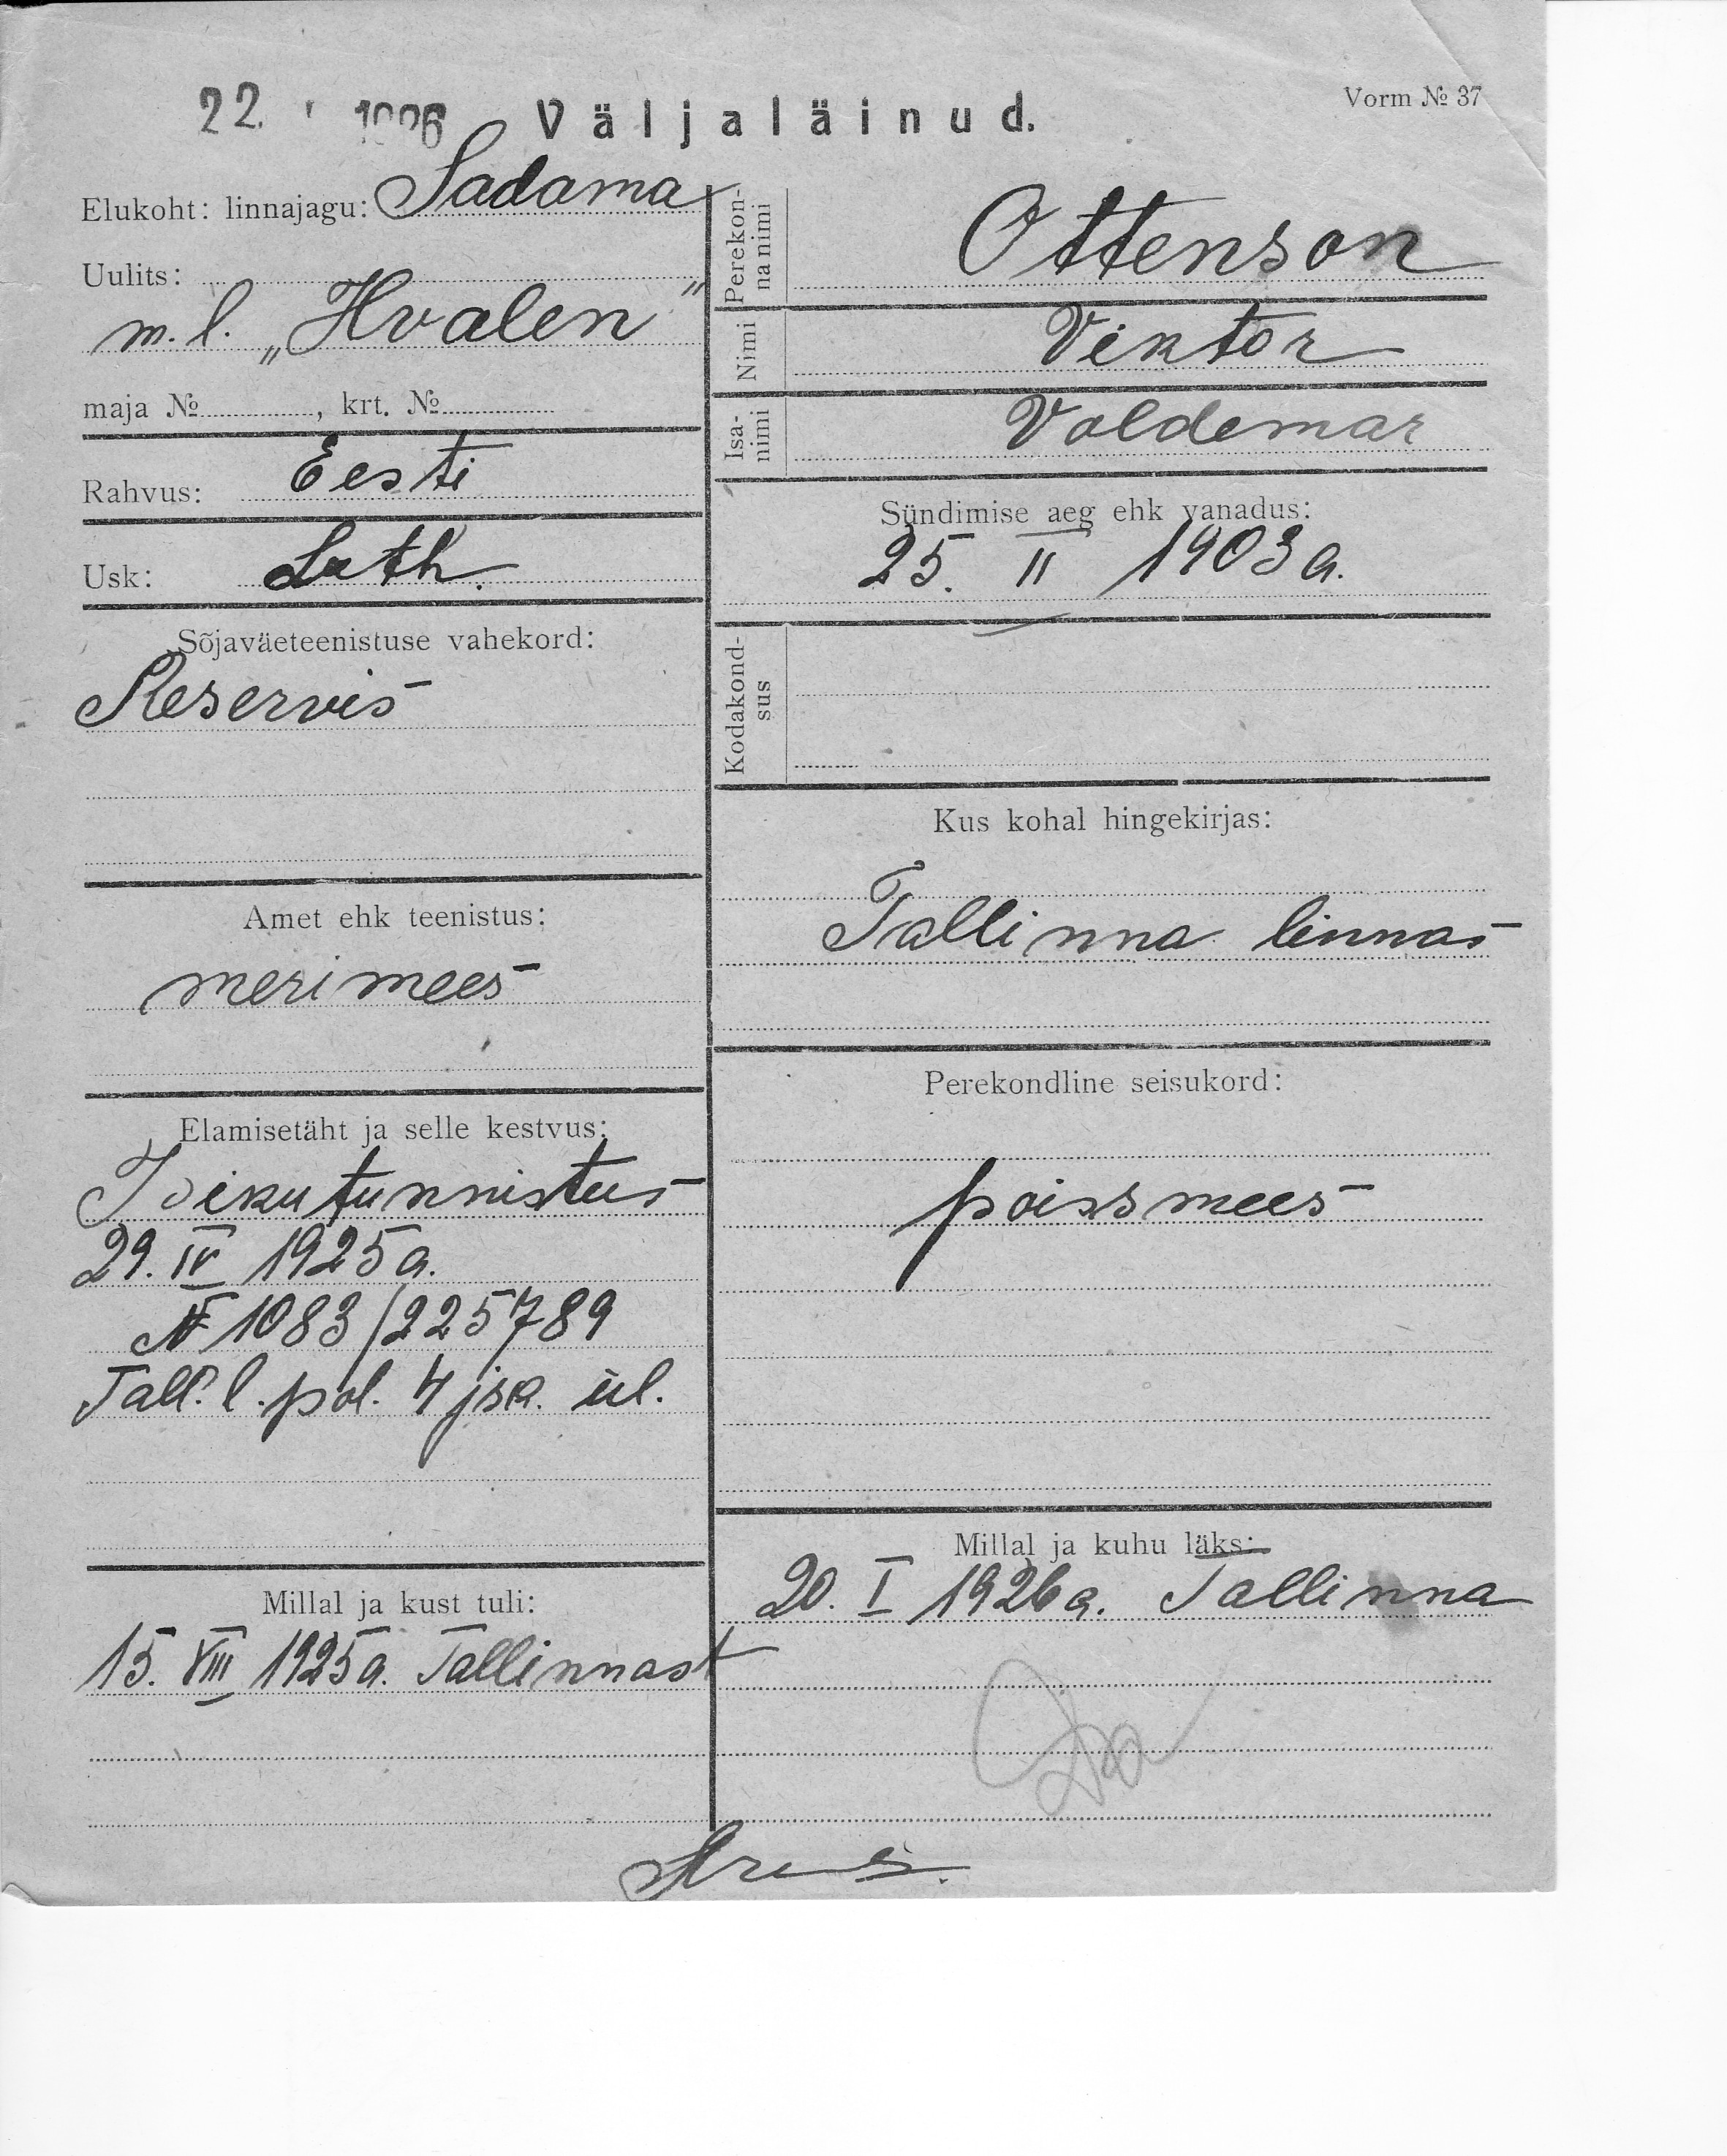 Vorm № 37
22. I 1926 Väljaläinud.
Elukoht: linnajagu: Sadama
Uulits:
m. l. „Hvalen"
maja № , krt. №
Rahvus: Eesti
Usk: Luth.
Sõjaväeteenistuse vahekord:
Reservis
Amet ehk teenistus:
merimees
Elamisetäht ja selle kestvus:
Isikutunnistus
29. IV 1925 a.
№ 1083/225789
Tall. l. pol. 4 jsk. ül.
Millal ja kust tuli:
15. VIII 1925 a. Tallinnast
Perekon-
na nimi
Ottenson
Nimi Viktor
Isa-
nimi
Voldemar
Sündimise aeg ehk vanadus:
25. II 1903 a.
Kodakond-
sus
Kus kohal hingekirjas:
Tallinna linnas
Perekondline seisukord:
poissmees
Millal ja kuhu läks:
20. I 1926 a. Tallinna